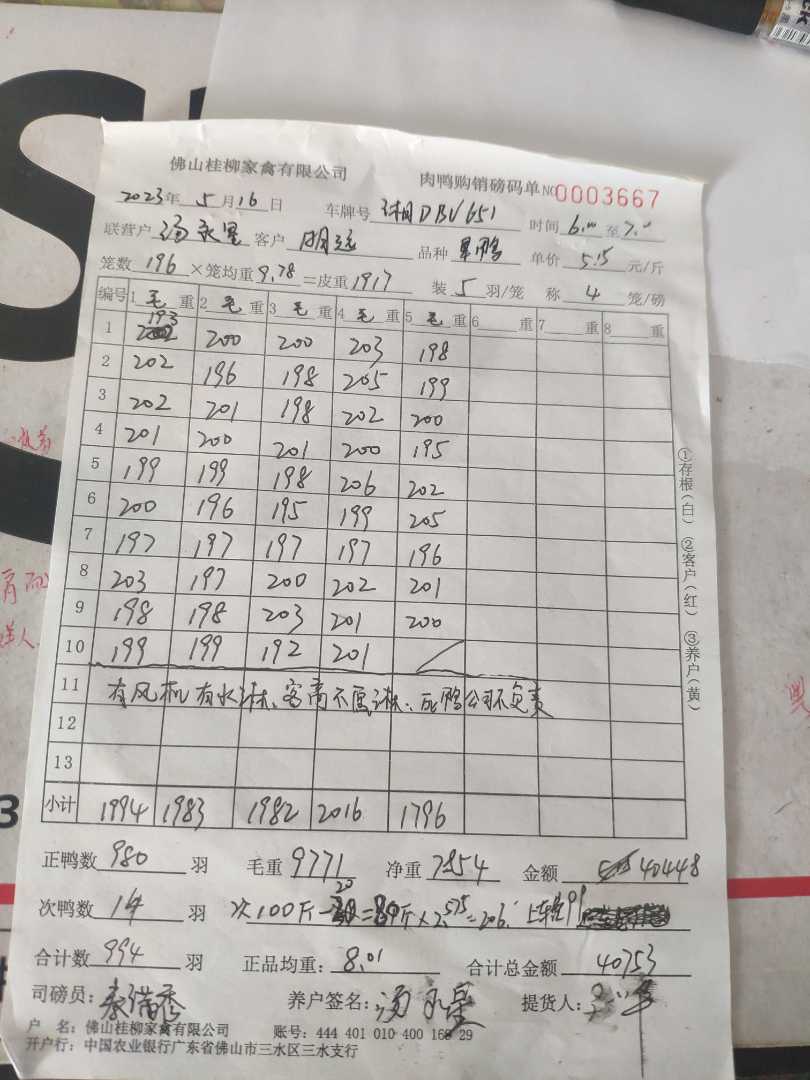 佛山桂柳家禽有限公司 肉鸭购销磅码单 NO 0003667
2023年 5月16日 车牌号 湘DBV651 时间 6.00 至 7.0
联营户 汤 客户 明远 品种 黑鸭 单价 5.15 元/斤
笼数 196 ×笼均重 9.78 =皮重 1917 装 5 羽/笼 称 4 笼/磅
编号 1 毛 重 2 毛 重 3 毛 重 4 毛 重 5 毛 重 6 重 7 重 8 重
1 193 200 200 203 198
2 202 196 198 205 199
3 202 201 198 202 200
4 201 200 201 200 195
5 199 199 198 206 202
6 200 196 195 199 205
7 197 197 197 197 196
8 203 197 200 202 201
9 198 198 203 201 200
10 199 199 192 201
11 有风机有水淋、客商不愿淋、死鸭公司不负责
12
13
小计 1994 1983 1982 2016 1796
正鸭数 980 羽 毛重 9771 净重 7854 金额 40448
次鸭数 14 羽 次100斤-20=80斤×2.575=206. 上车费99
合计数 994 羽 正品均重: 8.01 合计总金额 40753
司磅员: 养户签名: 汤 提货人:
户 名: 佛山桂柳家禽有限公司 账号: 444 401 010 400 168 29
开户行: 中国农业银行广东省佛山市三水区三水支行
①存根(白) ②客户(红) ③养户(黄)